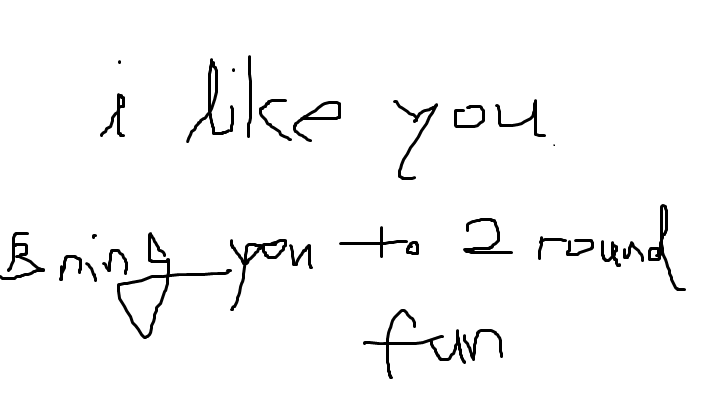 i like you
Bring you to 2 round
fun